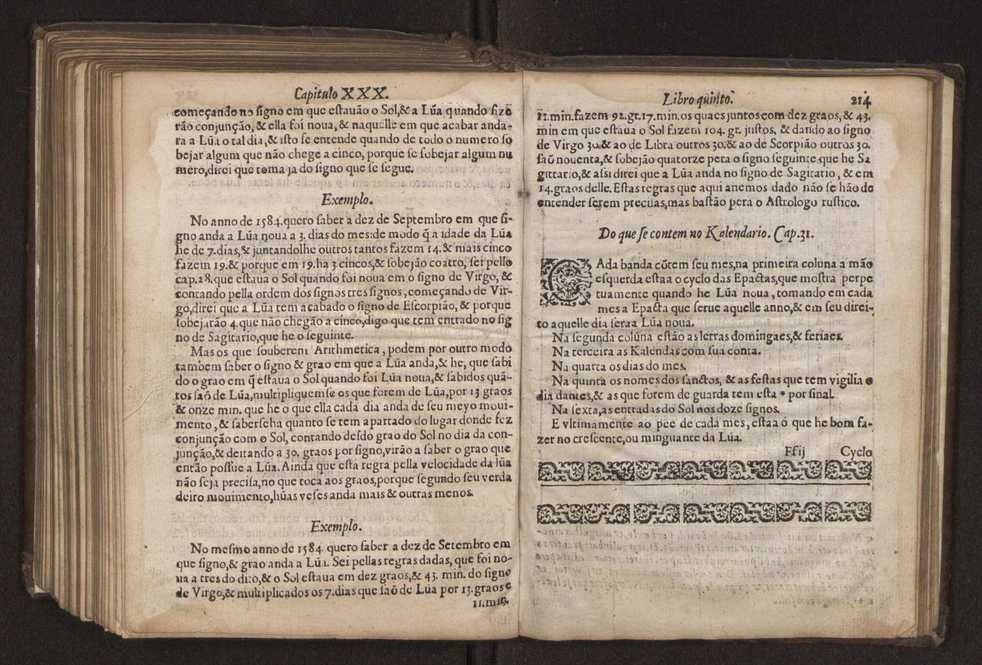 Capitulo XXX.
começando no signo em que estauão o Sol,& a Lũa quando fize
rão conjunção, & ella foi noua, & naquelle em que acabar anda-
ra a Lũa o tal dia, & isto se entende quando de todo o numero so
bejar algum que não chege a cinco, porque se sobejar algum nu
mero, direi que toma ja do signo que se segue.
Exemplo.
No anno de 1584. quero saber a dez de Septembro em que si-
gno anda a Lũa noua a 3. dias do mes: de modo q̃ a idade da Lũa
he de 7. dias, & juntandolhe outros tantos fazem 14. & mais cinco
fazem 19. & porque em 19. ha 3 cincos, & sobejão coatro, sei pello
cap. 28. que estaua o Sol quando foi noua em o signo de Virgo, &
contando pella ordem dos signos tres signos, começando de Vir-
go, direi que a Lũa tem acabado o signo de Escorpião, & porque
sobejarão 4. que não chegão a cinco, digo que tem entrado no sig
no de Sagitario, que he o seguinte.
Mas os que souberem Arithmetica, podem por outro modo
tambem saber o signo & grao em que a Lũa anda, & he, que sabi
do o grao em q̃ estaua o Sol quando foi Lũa noua, & sabidos quã-
tos saõ de Lũa, multipliquemse os que forem de Lũa, por 13 graos
& onze min. que he o que ella cada dia anda de seu meyo moui-
mento, & saberseha quanto se tem apartado do lugar donde fez
conjunção com o Sol, contando desdo grao do Sol no dia da con-
junção, & deitando a 30. graos por signo, virão a saber o grao que
então possue a Lũa. Ainda que esta regra pella velocidade da lũa
não seja precisa, no que toca aos graos, porque segundo seu verda
deiro mouimento, hũas veses anda mais & outras menos.
Exemplo.
No mesmo anno de 1584. quero saber a dez de Setembro em
que signo, & grao anda a Lũa. Sei pellas regras dadas, que foi no-
ua a tres do dito, & o Sol estaua em dez graos, & 43. min. do signo
de Virgo, & multiplicados os 7. dias que saõ de Lua por 13. graos e
11. min.
Libro quinto. 214
11. min. fazem 92. gr. 17. min. os quaes juntos com dez graos, & 43.
min em que estaua o Sol fazem 104. gr. justos, & dando ao signo
de Virgo 30. & ao de Libra outros 30. & ao de Scorpião outros 30.
saõ nouenta, & sobejão quatorze pera o signo seguinte, que he Sa
gittario, & assi direi que a Lũa anda no signo de Sagitario, & em
14. graos delle. Estas regras que aqui auemos dado não se hão de
entender serem precisas, mas bastão pera o Astrologo rustico.
Do que se contem no Kalendario. Cap. 31.
CAda banda cõtem seu mes, na primeira coluna a mão
esquerda estaa o cyclo das Epactas, que mostra perpe
tuamente quando he Lũa noua, tomando em cada
mes a Epacta que serue aquelle anno, & em seu direi-
to aquelle dia seraa Lũa noua.
Na segunda colũna estão as letras domingaes, & feriaes.
Na terceira as Kalendas com sua conta.
Na quarta os dias do mes.
Na quinta os nomes dos sanctos, & as festas que tem vigilia o
dia dantes, & as que forem de guarda tem esta * por sinal.
Na sexta, as entradas do Sol nos doze signos.
E vltimamente ao pee de cada mes, estaa o que he bom fa-
zer no crescente, ou minguante da Lũa.
Ff ij Cyclo